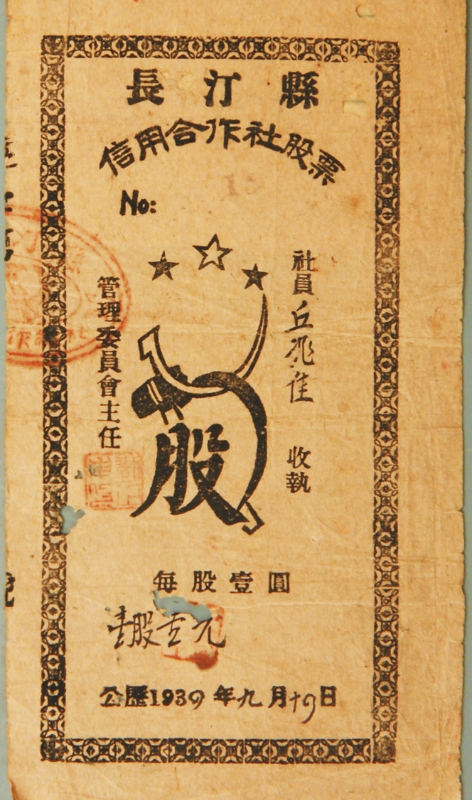 長汀縣
信用合作社股票
No:
社員丘飛佳收執
股
管理委員會主任
每股壹圓
壹股壹元
公歷1939年九月十9日